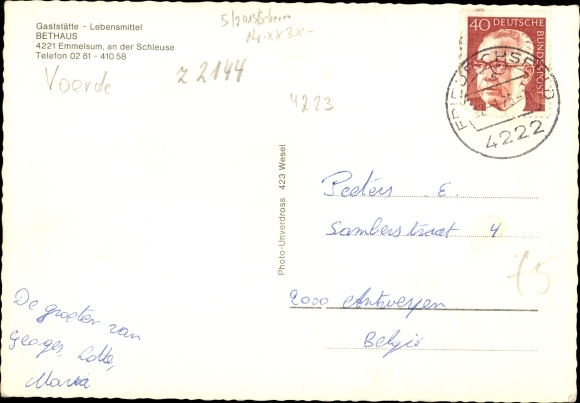 Gaststätte - Lebensmittel
BETHAUS
4221 Emmelsum, an der Schleuse
Telefon 02 81 - 410 58
Voerde
z 2144
4223
40 DEUTSCHE
BUNDESPOST
FRIEDRICHSFELD
4222
Photo-Unverdross 423 Wesel
Peeters E.
Samberstraat 4
2000 Antwerpen
België
De groeten van
Georges, Lotte,
Maria